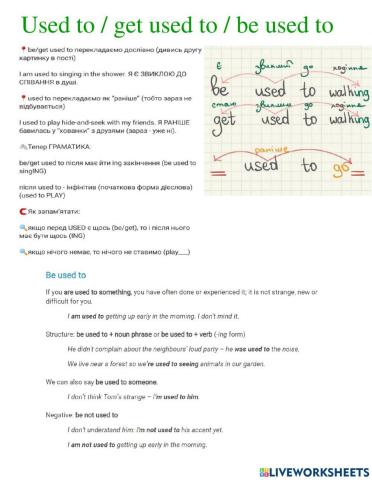 Used to / get used to / be used to
📍 be/get used to перекладаємо дослівно (дивись другу
картинку в пості)
I am used to singing in the shower. Я Є ЗВИКЛОЮ ДО
СПІВАННЯ в душі.
📍 used to перекладаємо як "раніше" (тобто зараз не
відбувається)
I used to play hide-and-seek with my friends. Я РАНІШЕ
бавилась у "хованки" з друзями (зараз - уже ні).
Тепер ГРАМАТИКА:
be/get used to після має йти ing закінчення (be used to
singING)
після used to - інфінітив (початкова форма дієслова)
(used to PLAY)
🧲 Як запам'ятати:
🔍якщо перед USED є щось (be/get), то і після нього
має бути щось (ING)
🔍якщо нічого немає, то нічого не ставимо (play___)
є звиклий до ходіння
be used to walking
стаю звиклим до ходіння
get used to walking
раніше
= used to go =
Be used to
If you are used to something, you have often done or experienced it; it is not strange, new or
difficult for you.
I am used to getting up early in the morning. I don't mind it.
Structure: be used to + noun phrase or be used to + verb (-ing form)
He didn't complain about the neighbours' loud party – he was used to the noise.
We live near a forest so we're used to seeing animals in our garden.
We can also say be used to someone.
I don't think Tom's strange – I'm used to him.
Negative: be not used to
I don't understand him: I'm not used to his accent yet.
I am not used to getting up early in the morning.
LIVEWORKSHEETS